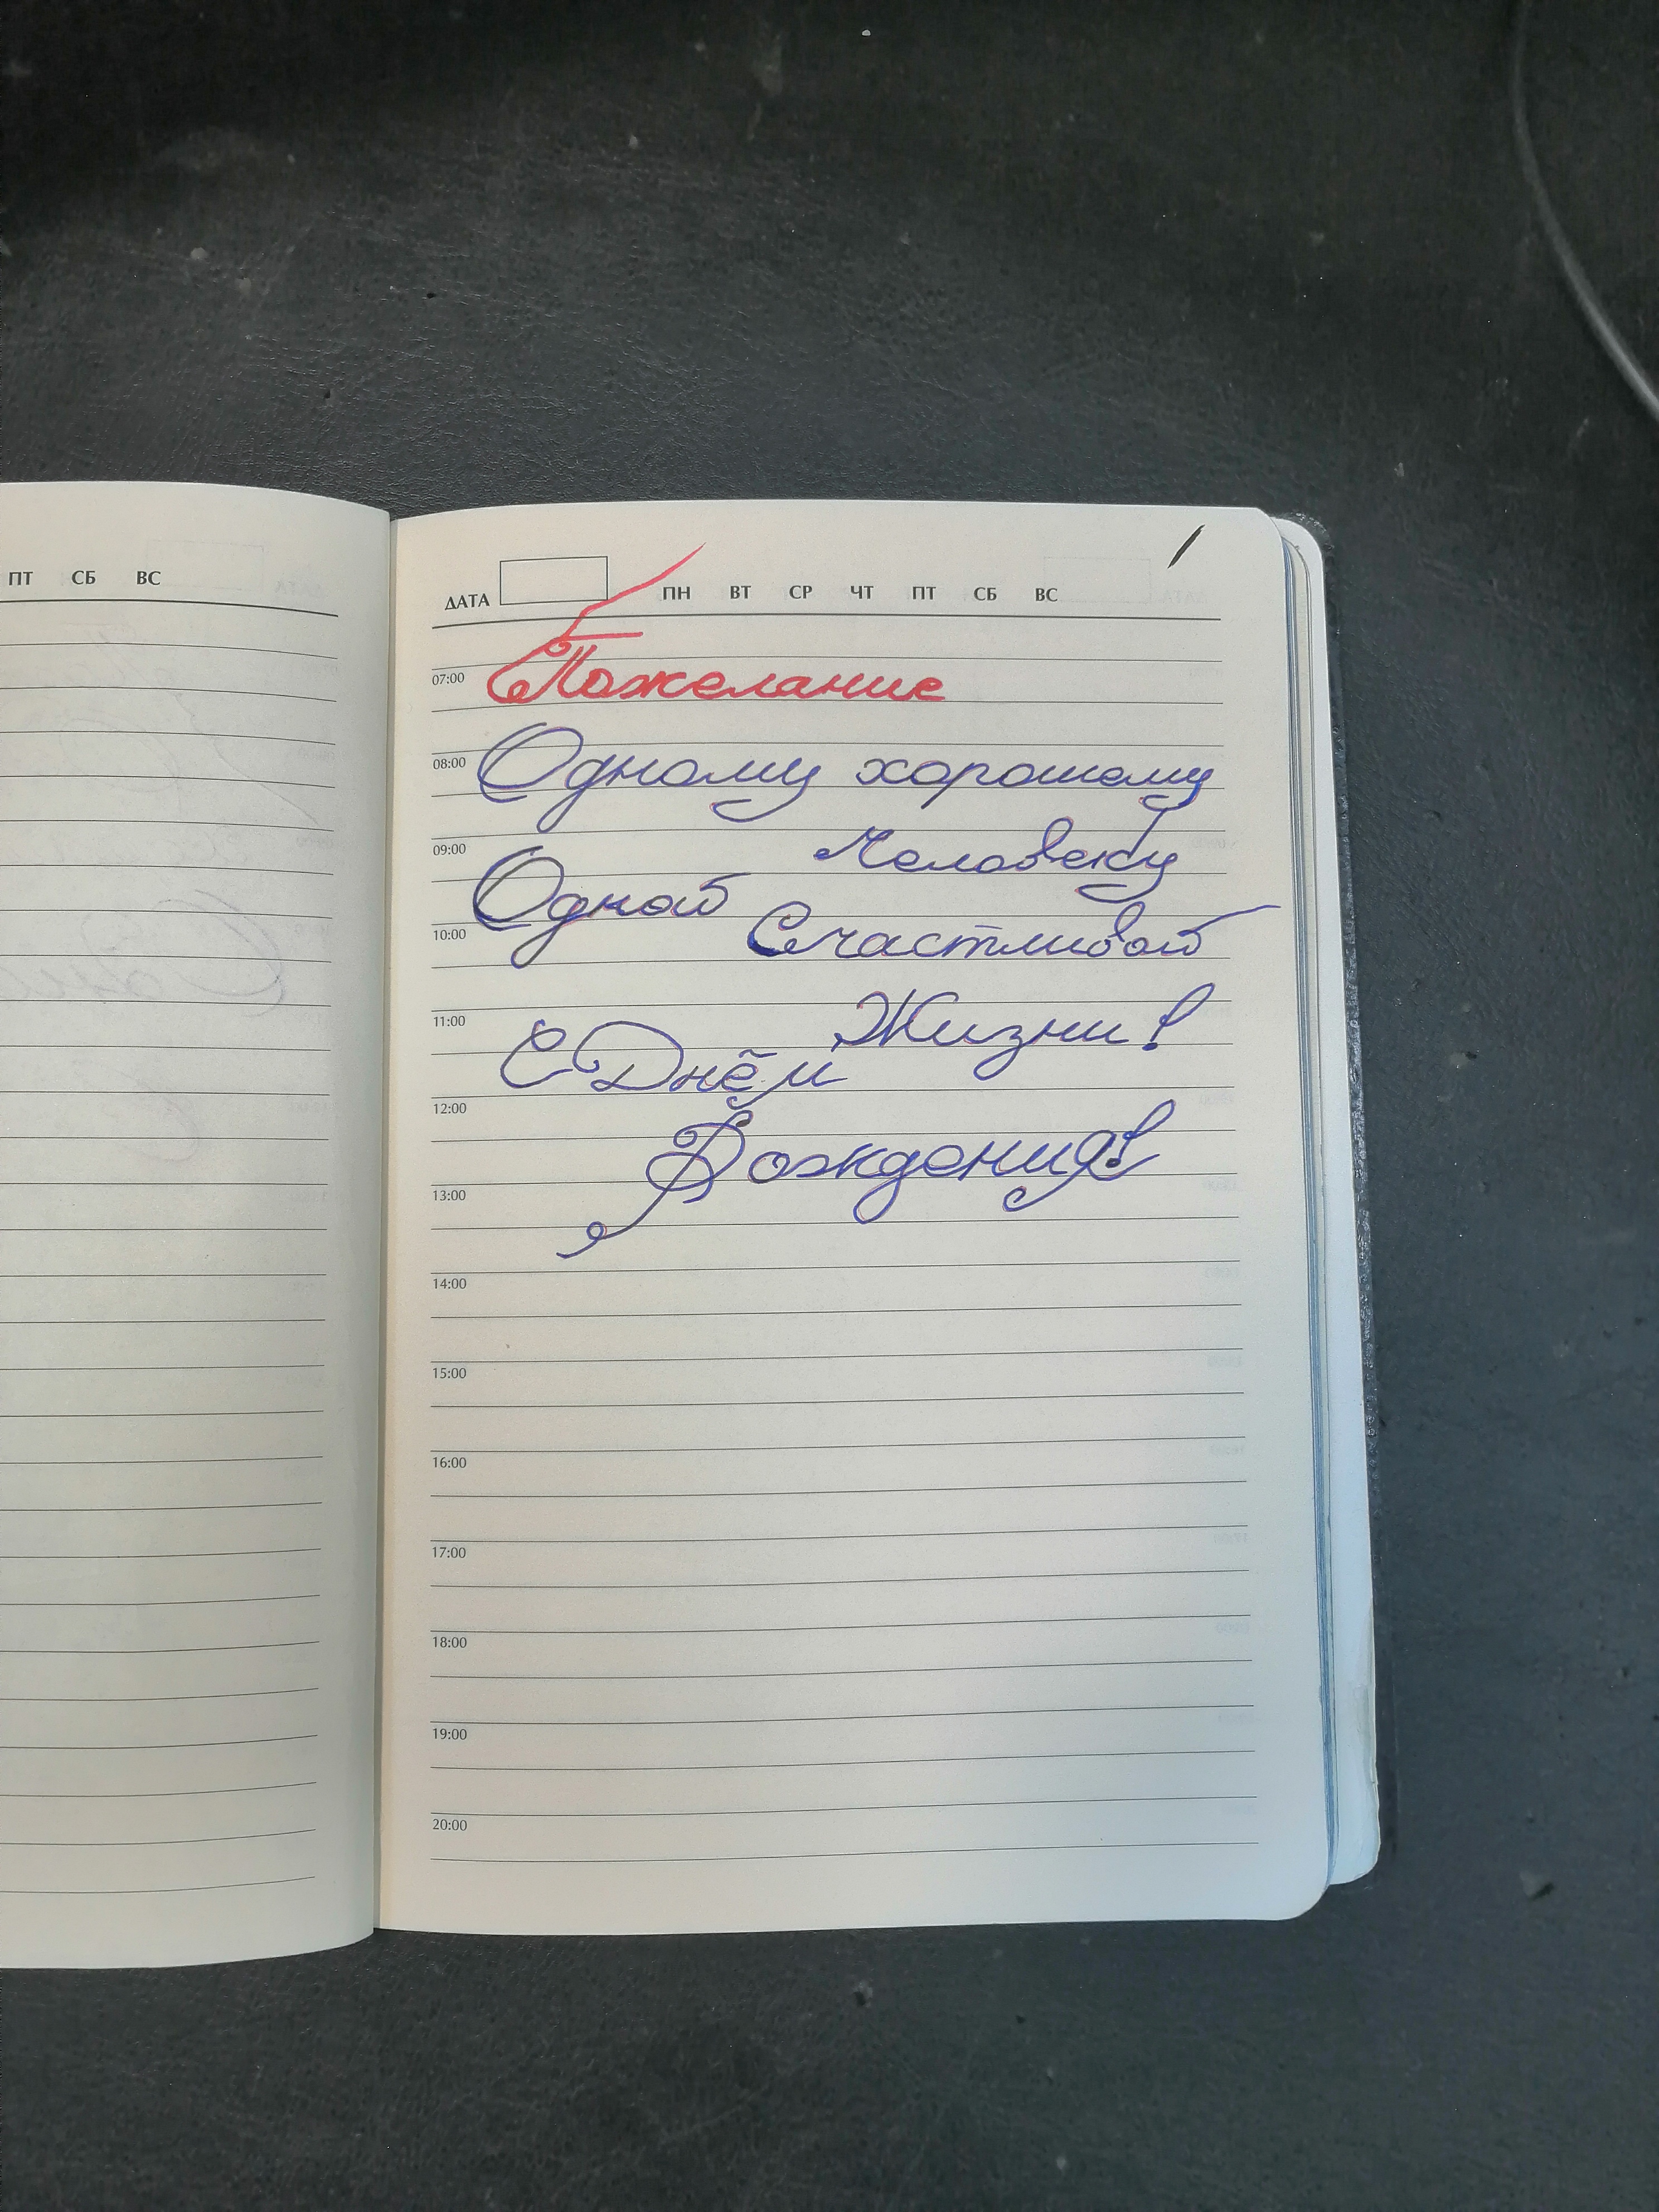 ПТ СБ ВС
ДАТА ПН ВТ СР ЧТ ПТ СБ ВС
07:00 Пожелание
08:00 Одному хорошему
09:00 Человеку
Одной
10:00 Счастливой
11:00 Жизни!
С Днём
12:00
Рождения!
13:00
14:00
15:00
16:00
17:00
18:00
19:00
20:00